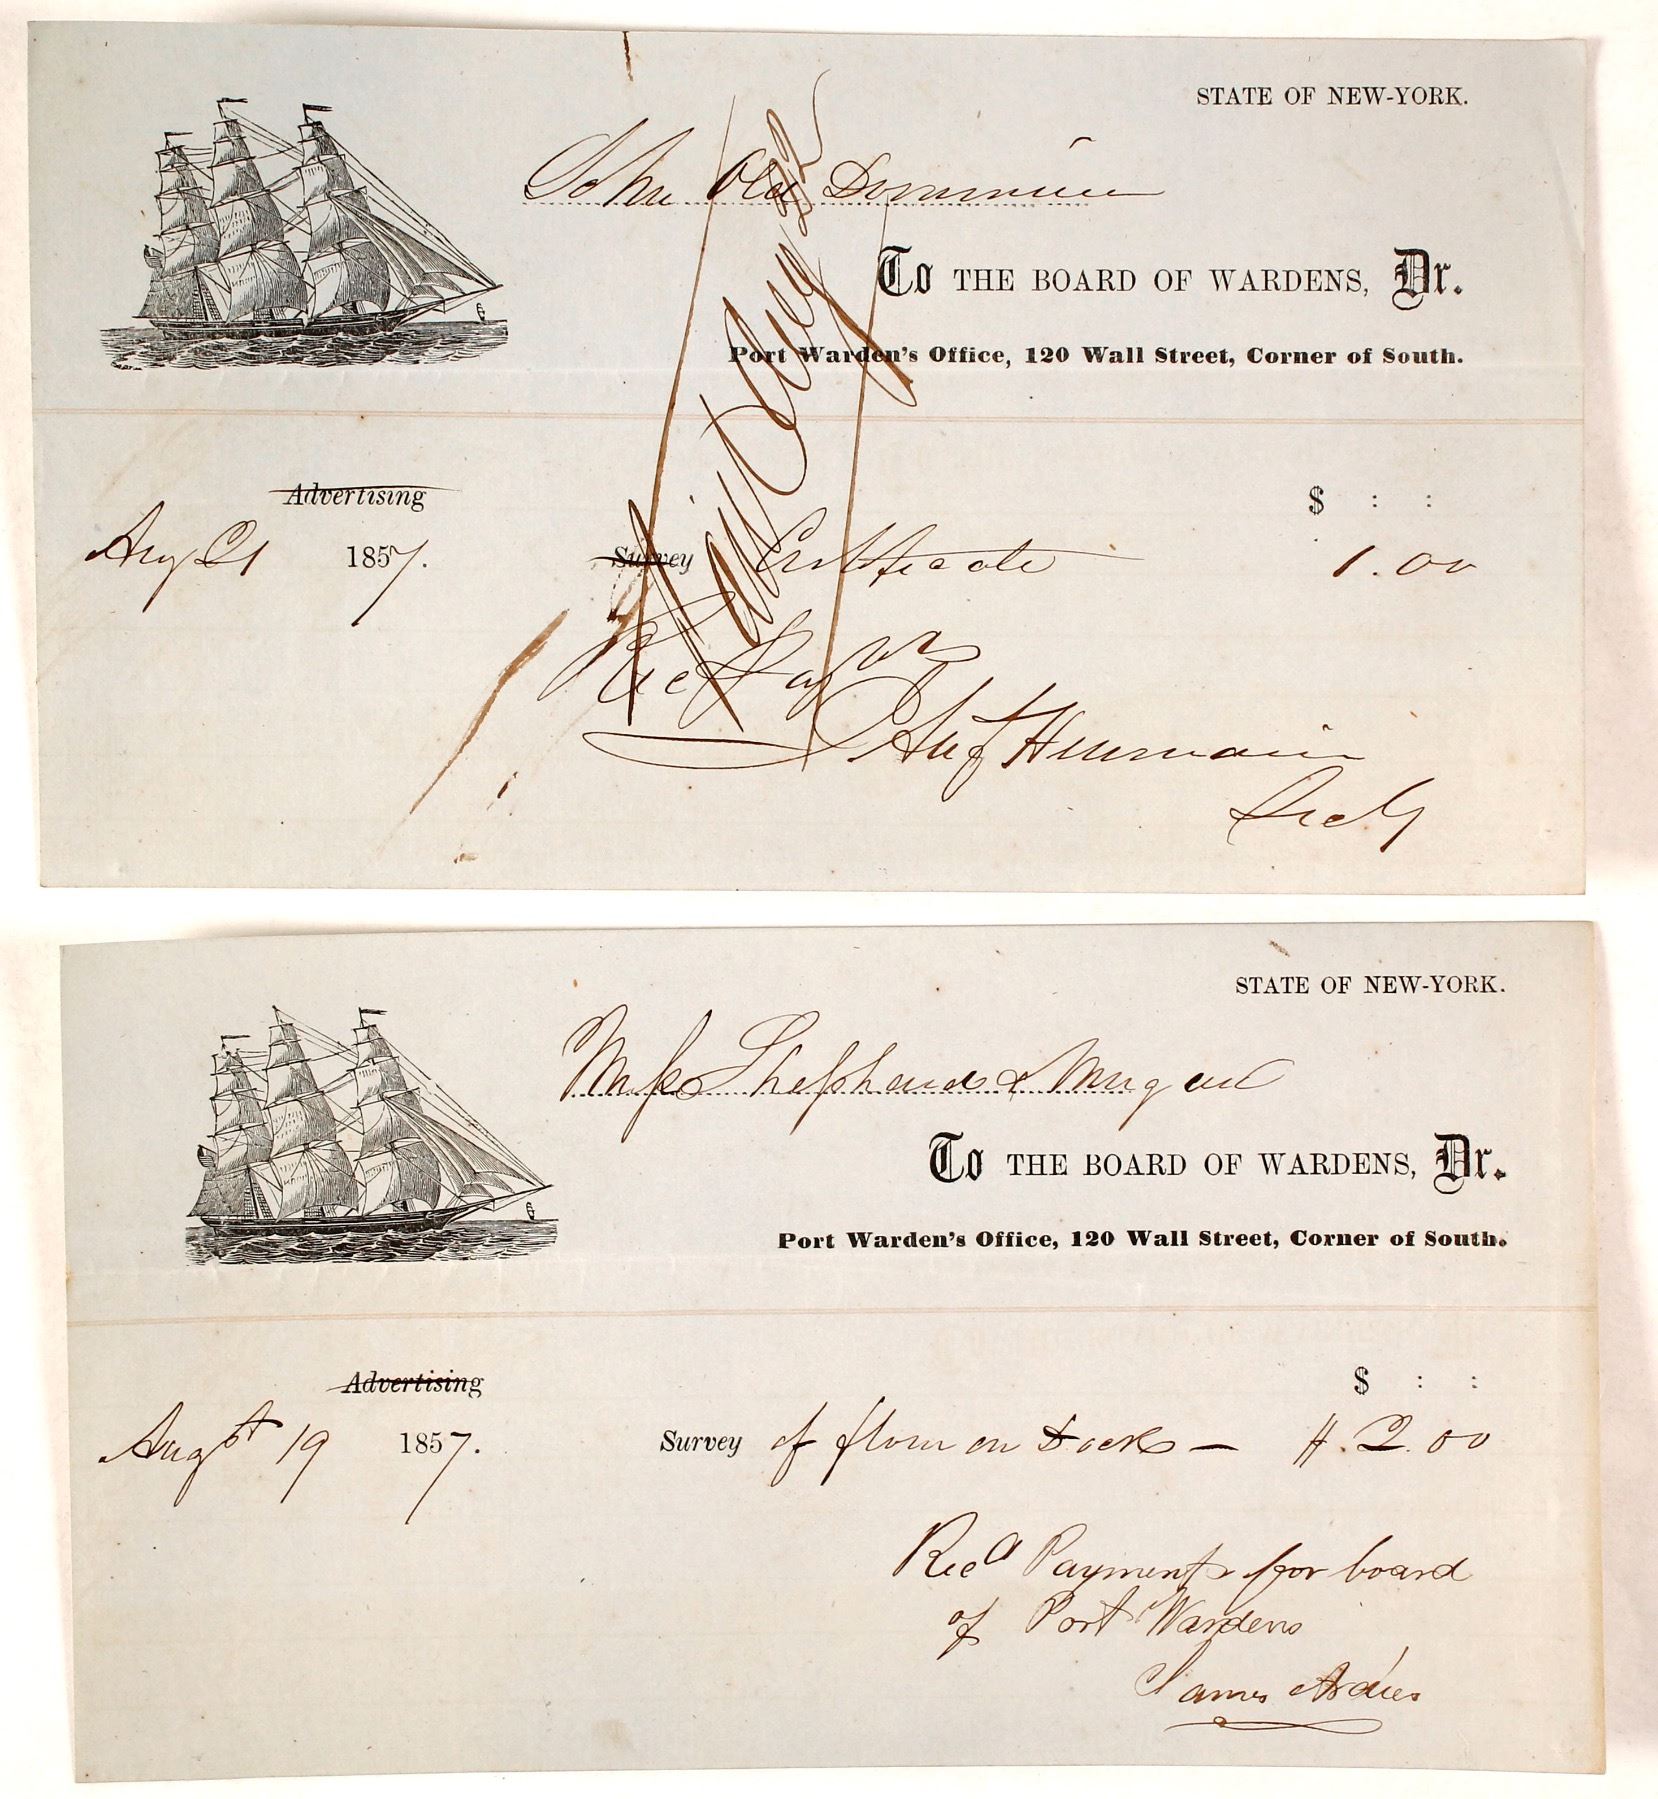 STATE OF NEW-YORK.
John Old Dominion
To THE BOARD OF WARDENS, Dr.
Port Warden's Office, 120 Wall Street, Corner of South.
Advertising
$ : :
Aug 21 1857. Survey Certificate 1.00
Rec Pay
Secy
STATE OF NEW-YORK.
Shepherd & Nugent
To THE BOARD OF WARDENS, Dr.
Port Warden's Office, 120 Wall Street, Corner of South.
Advertising
$ : :
Augst 19 1857. Survey of flour on Dock — $.2.00
Recd Payment for board
of Port Wardens
James